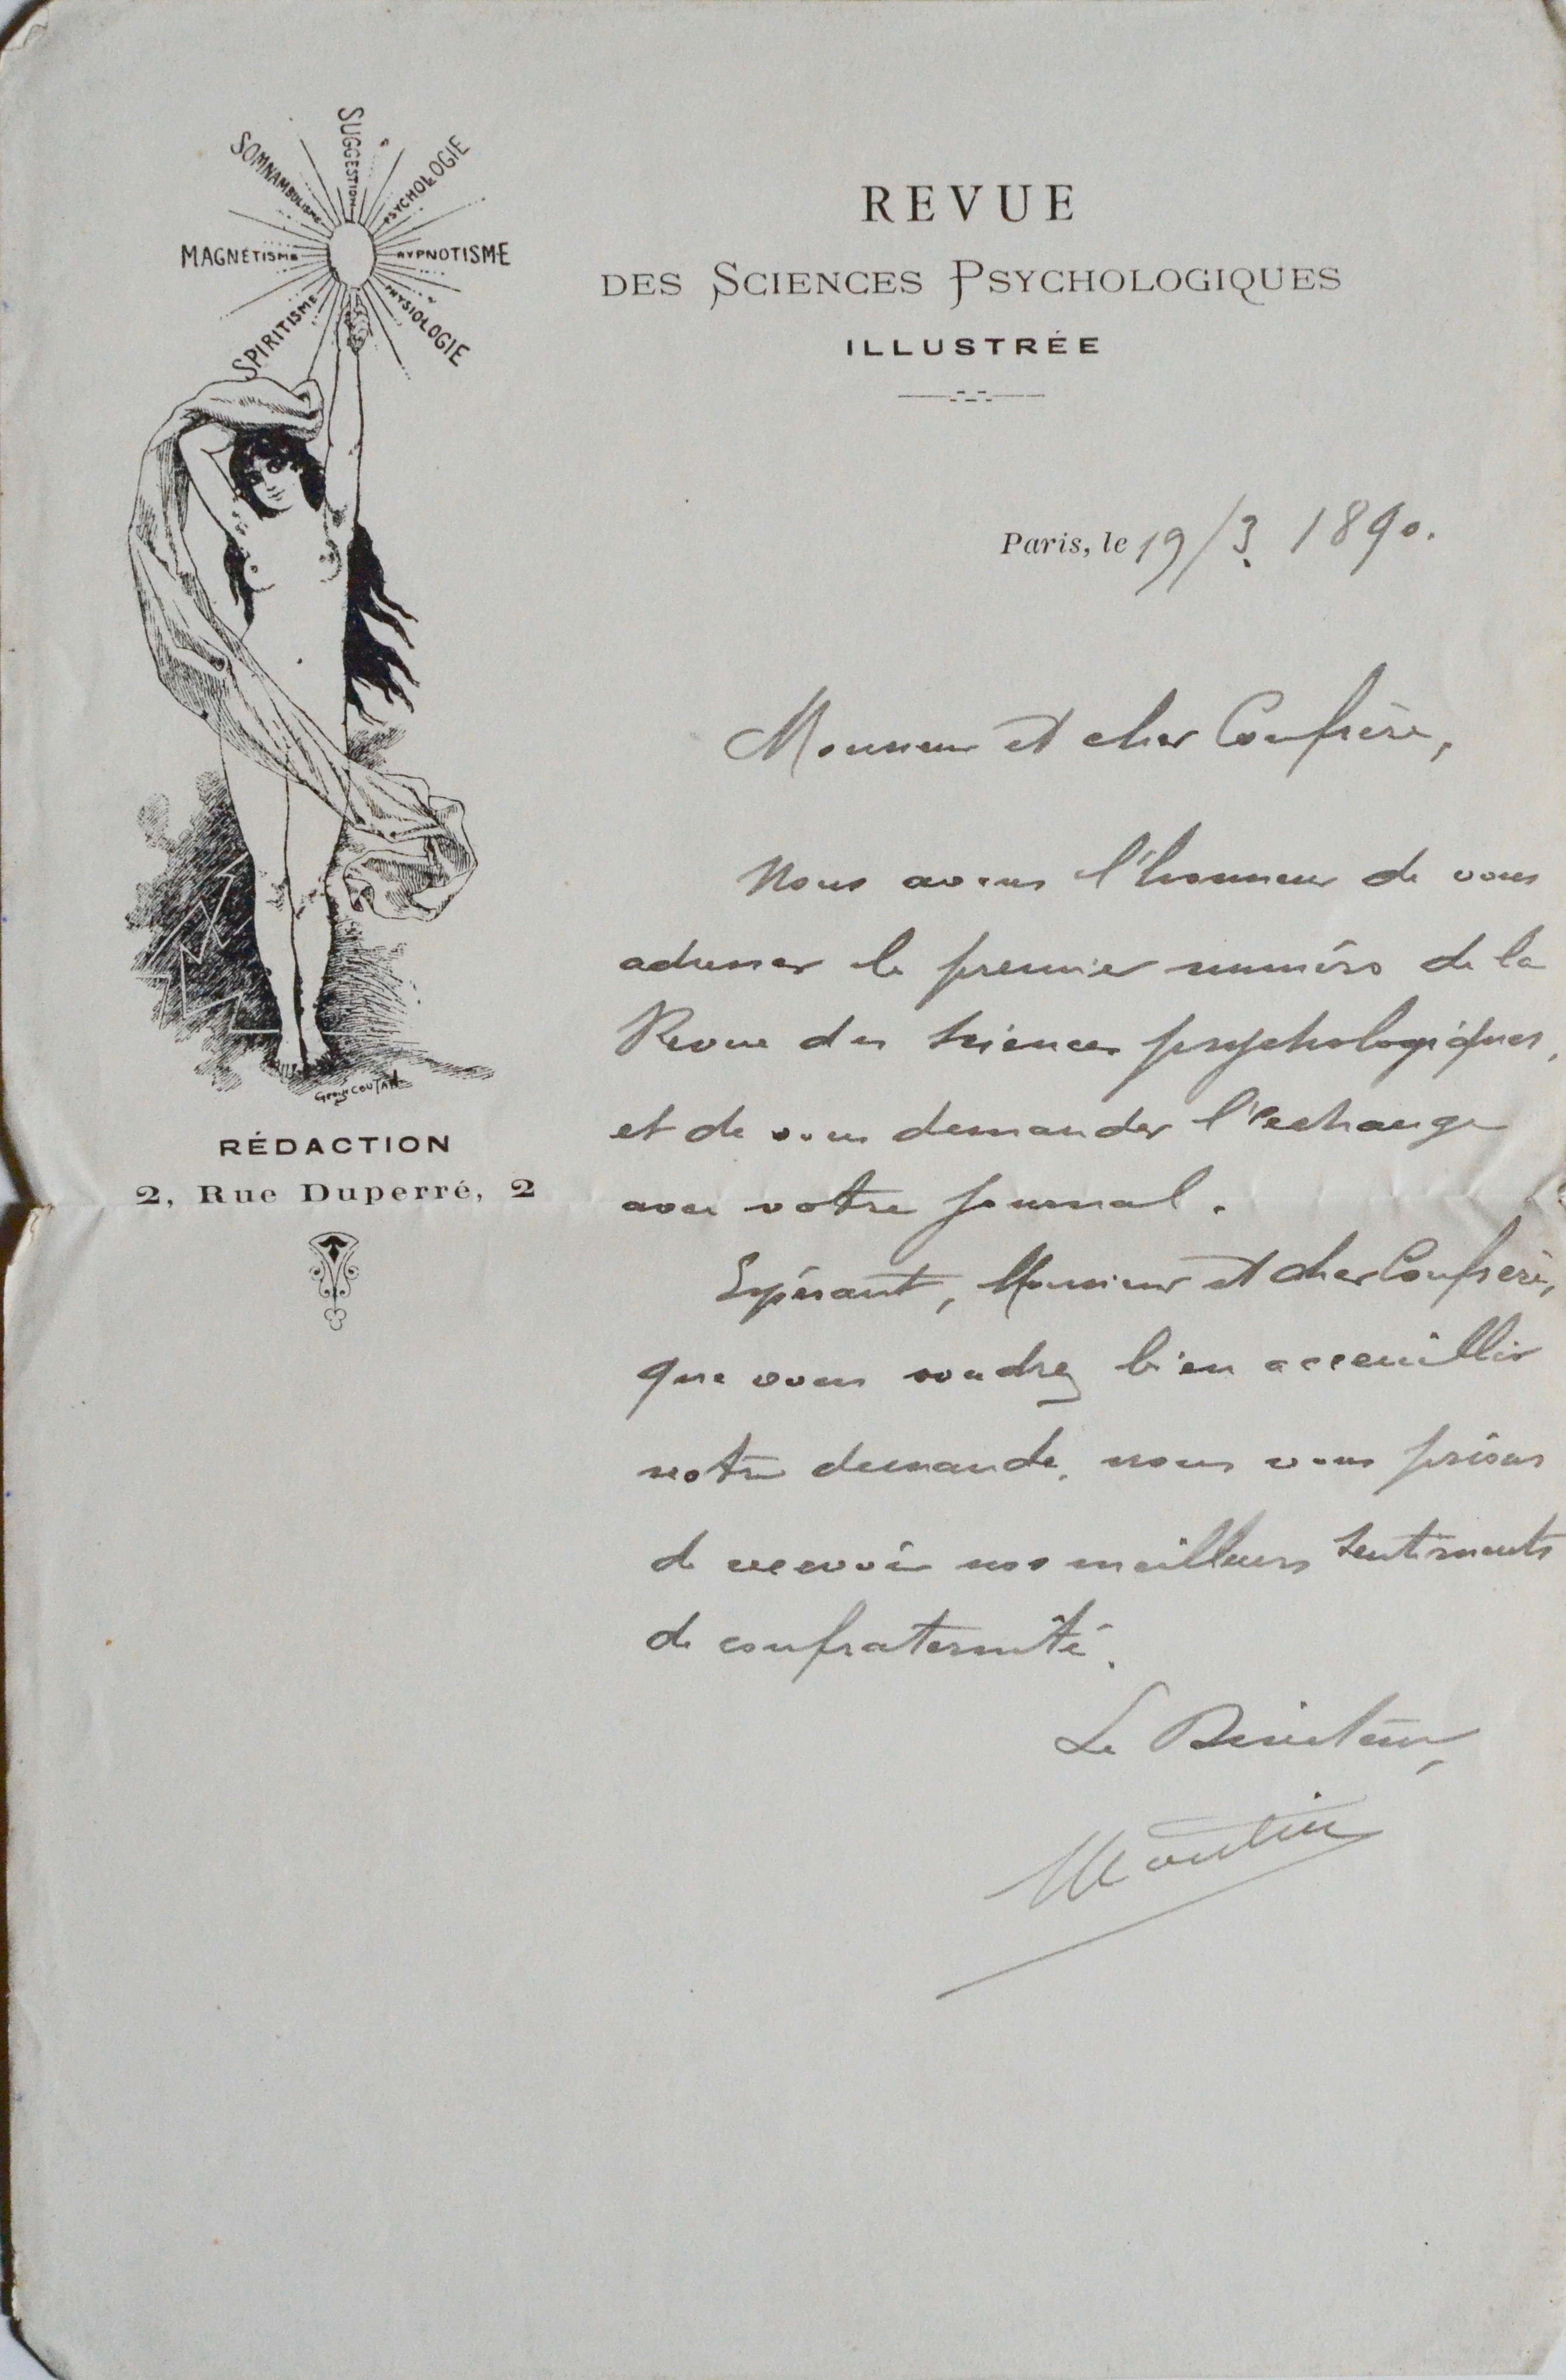 SUGGESTION
SOMNAMBULISME
PSYCHOLOGIE
MAGNÉTISME
HYPNOTISME
SPIRITISME
PHYSIOLOGIE
REVUE
DES SCIENCES PSYCHOLOGIQUES
ILLUSTRÉE
Paris, le 19/3. 1890.
Monsieur et cher Confrère,
Nous avons l'honneur de vous
adresser le premier numéro de la
Revue des Sciences psychologiques,
et de vous demander l'echange
avec votre journal.
Espérant, Monsieur et cher Confrère,
que vous voudrez bien acceuillir
notre demande, nous vous prions
de recevoir nos meilleurs sentiments
de confraternité.
Le Directeur,
Moutin
COUTAN
RÉDACTION
2, Rue Duperré, 2